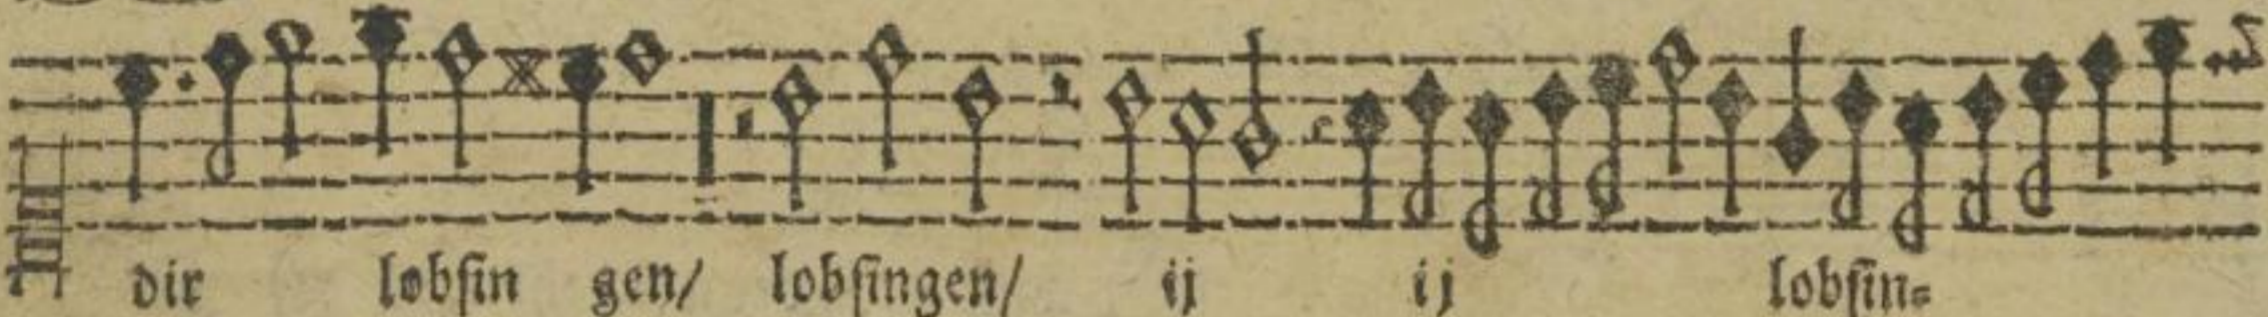 dir lobſin gen/ lobſingen/ ij ij lobſin⸗